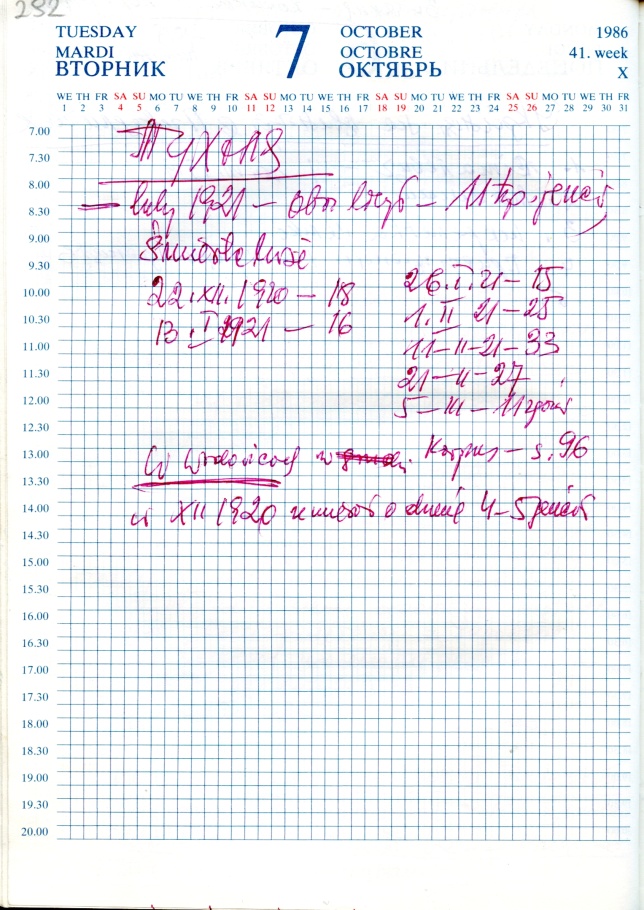 292
TUESDAY 7 OCTOBER 1986
MARDI OCTOBRE 41. week
ВТОРНИК ОКТЯБРЬ X
WE TH FR SA SU MO TU WE TH FR SA SU MO TU WE TH FR SA SU MO TU WE TH FR SA SU MO TU WE TH FR
1 2 3 4 5 6 7 8 9 10 11 12 13 14 15 16 17 18 19 20 21 22 23 24 25 26 27 28 29 30 31
7.00
Тухоля
7.30
8.00
— luty 1921 — obóz liczył — 11 tys. jeńców
8.30
9.00
Śmiertelność
9.30
22.XII.1920 — 18 26.I.21 — 15
10.00
13.I 1921 — 16 1.II 21 — 25
10.30
11-II-21-33
11.00
21-II-27
11.30
5-III-11
12.00
12.30
W w Korpus - s. 96
13.00
13.30
w XII 1920 umierało dziennie 4-5 jeńców
14.00
14.30
15.00
15.30
16.00
16.30
17.00
17.30
18.00
18.30
19.00
19.30
20.00